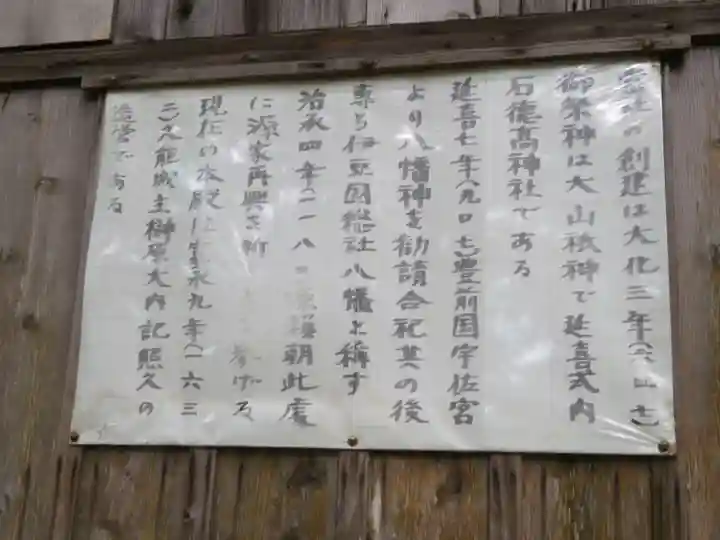 當社の創建は大化三年(六四七)
御祭神は大山祗神で延喜式内
石德髙神社である
延喜七年(九〇七)豊前国宇佐宮
より八幡神を勧請合祀其の後
専ら伊豆国總社八幡と稱す
治承四年(一一八〇)源頼朝此處
に源家再興を祈 挙げる
現在の本殿は寛永九年(一六三
二)久能城主榊原大内記照久の
造營である